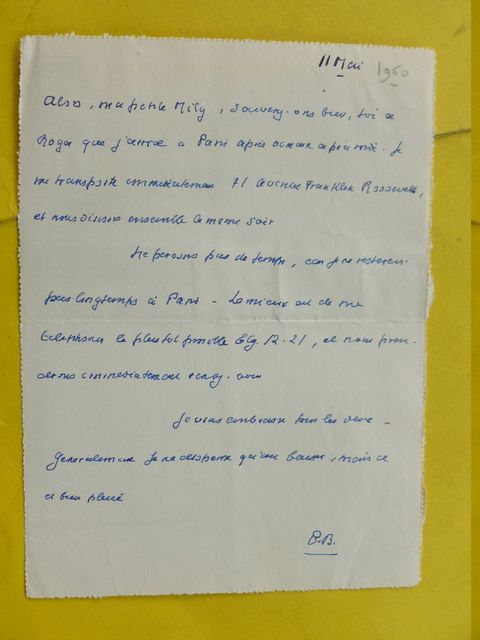 11 Mai 1960
Alors, ma petite Mily, souvenez-ons bien, toi et
Roger que j'arrive à Paris après demain après midi. Je
me transporte immédiatement 71 avenue Franklin Roosevelt,
et nous dinons ensemble le même soir
Ne perdons pas de temps, car je ne resterai
pas longtemps à Paris - Le mieux est de me
téléphoner le plus tôt possible Ely. 12-21, et nous pren-
drons immédiatement rendez-vous
Je vous embrasse tous les deux -
Généralement je ne dispense qu'un baiser, mais il
est bien placé
B.B.